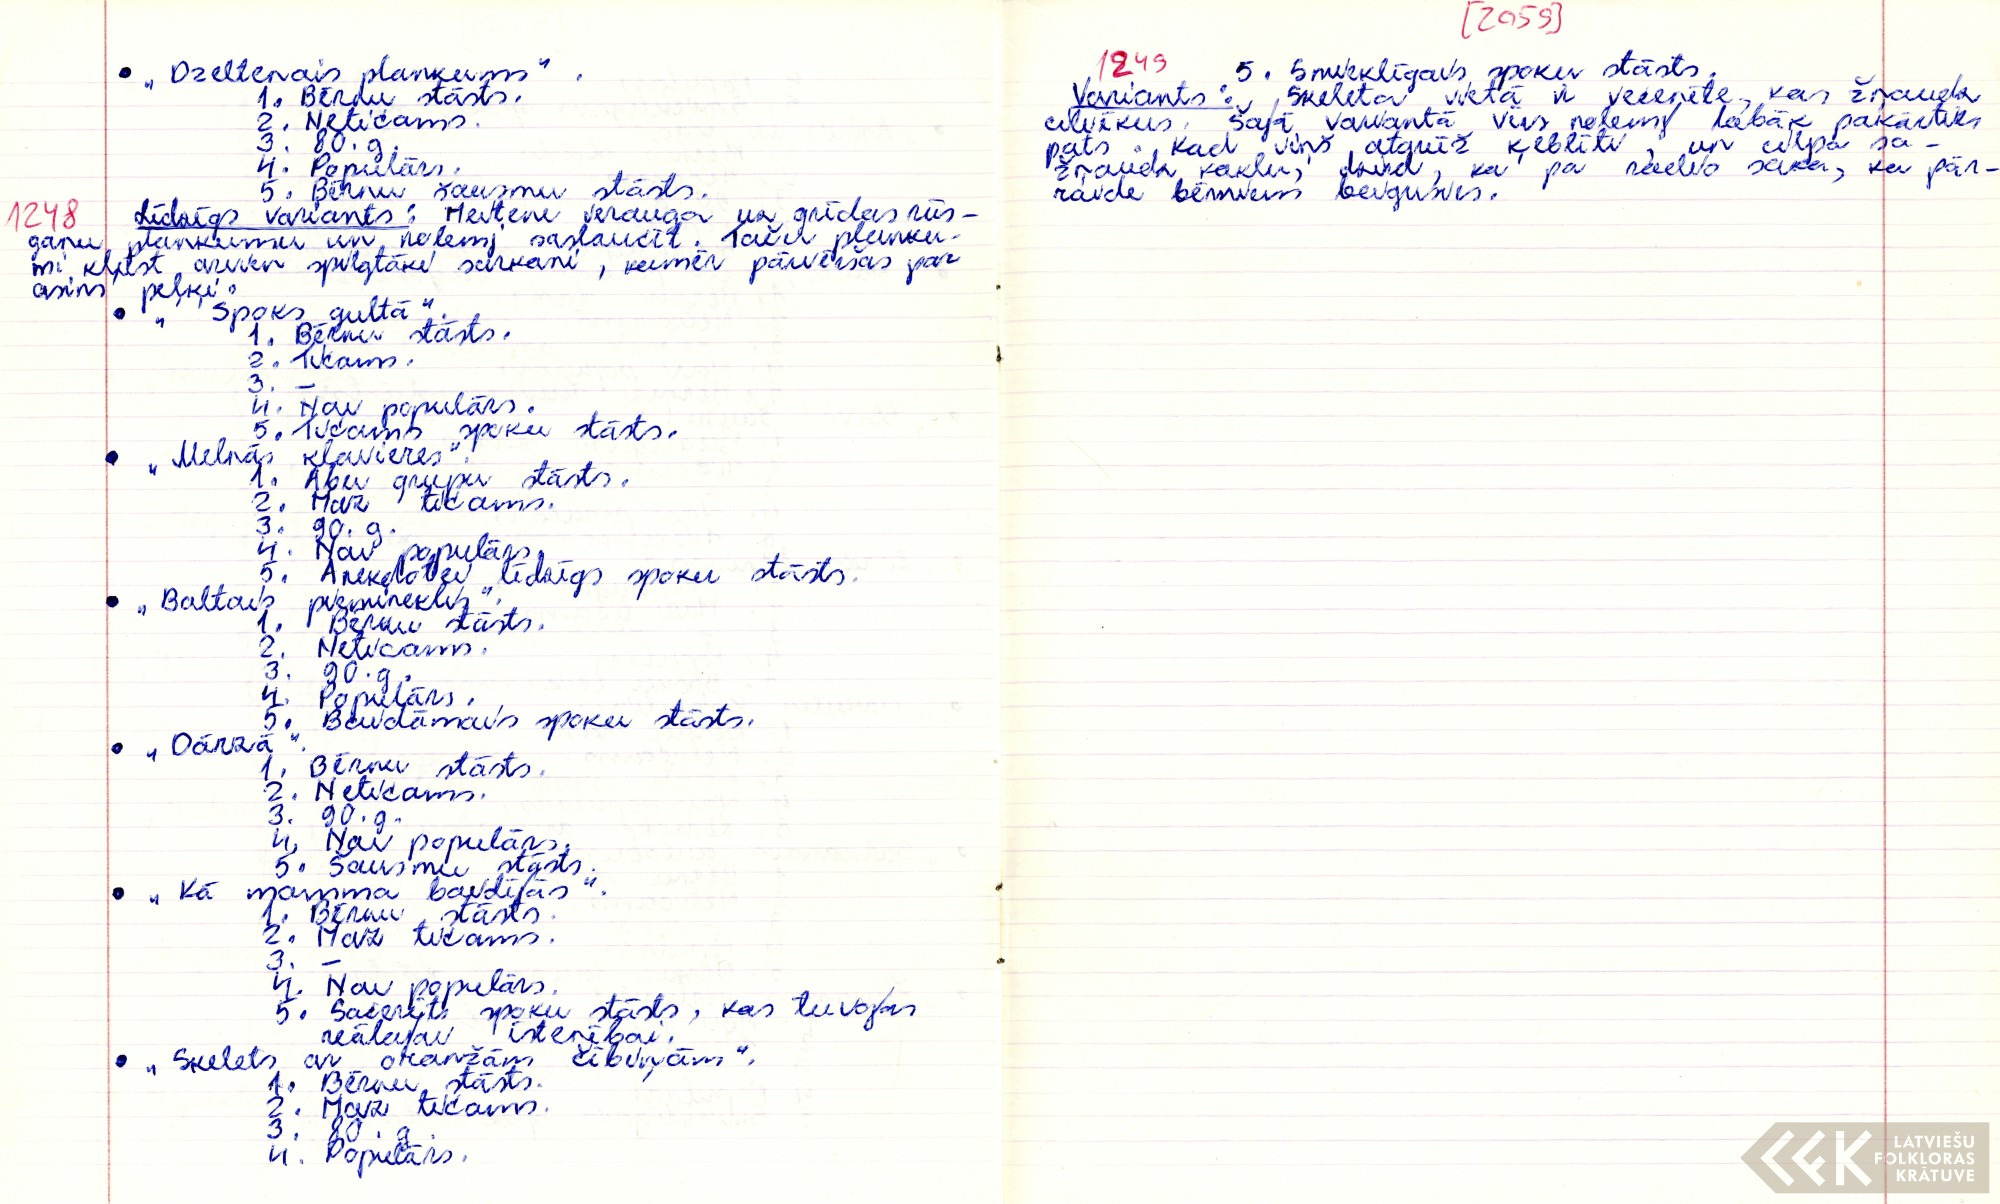 • „Dzeltenais plankums".
1. Bērnu stāsts.
2. Neticams.
3. 80. g.
4. Populārs.
5. Bērnu šausmu stāsts.
1248 Līdzīgs variants: Meitene ierauga uz grīdas rūs-
ganu plankumu un nolemj saslaucīt. Taču planku-
mi kļūst arvien spilgtāki sarkani, kamēr pārvēršas par
asins peļķi.
• „Spoks gultā".
1. Bērnu stāsts.
2. Ticams.
3. –
4. Nav populārs.
5. Ticams spoku stāsts.
• „Melnās klavieres".
1. Abu grupu stāsts.
2. Maz ticams.
3. 90. g.
4. Nav populārs.
5. Anekdotei līdzīgs spoku stāsts.
• „Baltais piemineklis".
1. Bērnu stāsts.
2. Neticams.
3. 90. g.
4. Populārs.
5. Baudāmais spoku stāsts.
• „Dārzā".
1. Bērnu stāsts.
2. Neticams.
3. 90. g.
4. Nav populārs.
5. Šausmu stāsts.
• „Kā mamma baidījās".
1. Bērnu stāsts.
2. Maz ticams.
3. –
4. Nav populārs.
5. Sacerēts spoku stāsts, kas tuvojas
reālajai īstenībai.
• „Skelets ar oranžām čībiņām".
1. Bērnu stāsts.
2. Maz ticams.
3. 80. g.
4. Populārs.
[2059]
1249 5. Smieklīgais spoku stāsts.
Variants: Skeleta vietā ir vecenīte, kas žņaudz
cilvēkus. Šajā variantā vīrs nolemj labāk pakārties
pats. Kad viņš atgrūž ķeblīti, un cilpa sa-
žņaudz kaklu, dzird, ka pa radio saka, ka pār-
raide bērniem beigusies.
LATVIEŠU
FOLKLORAS
KRĀTUVE